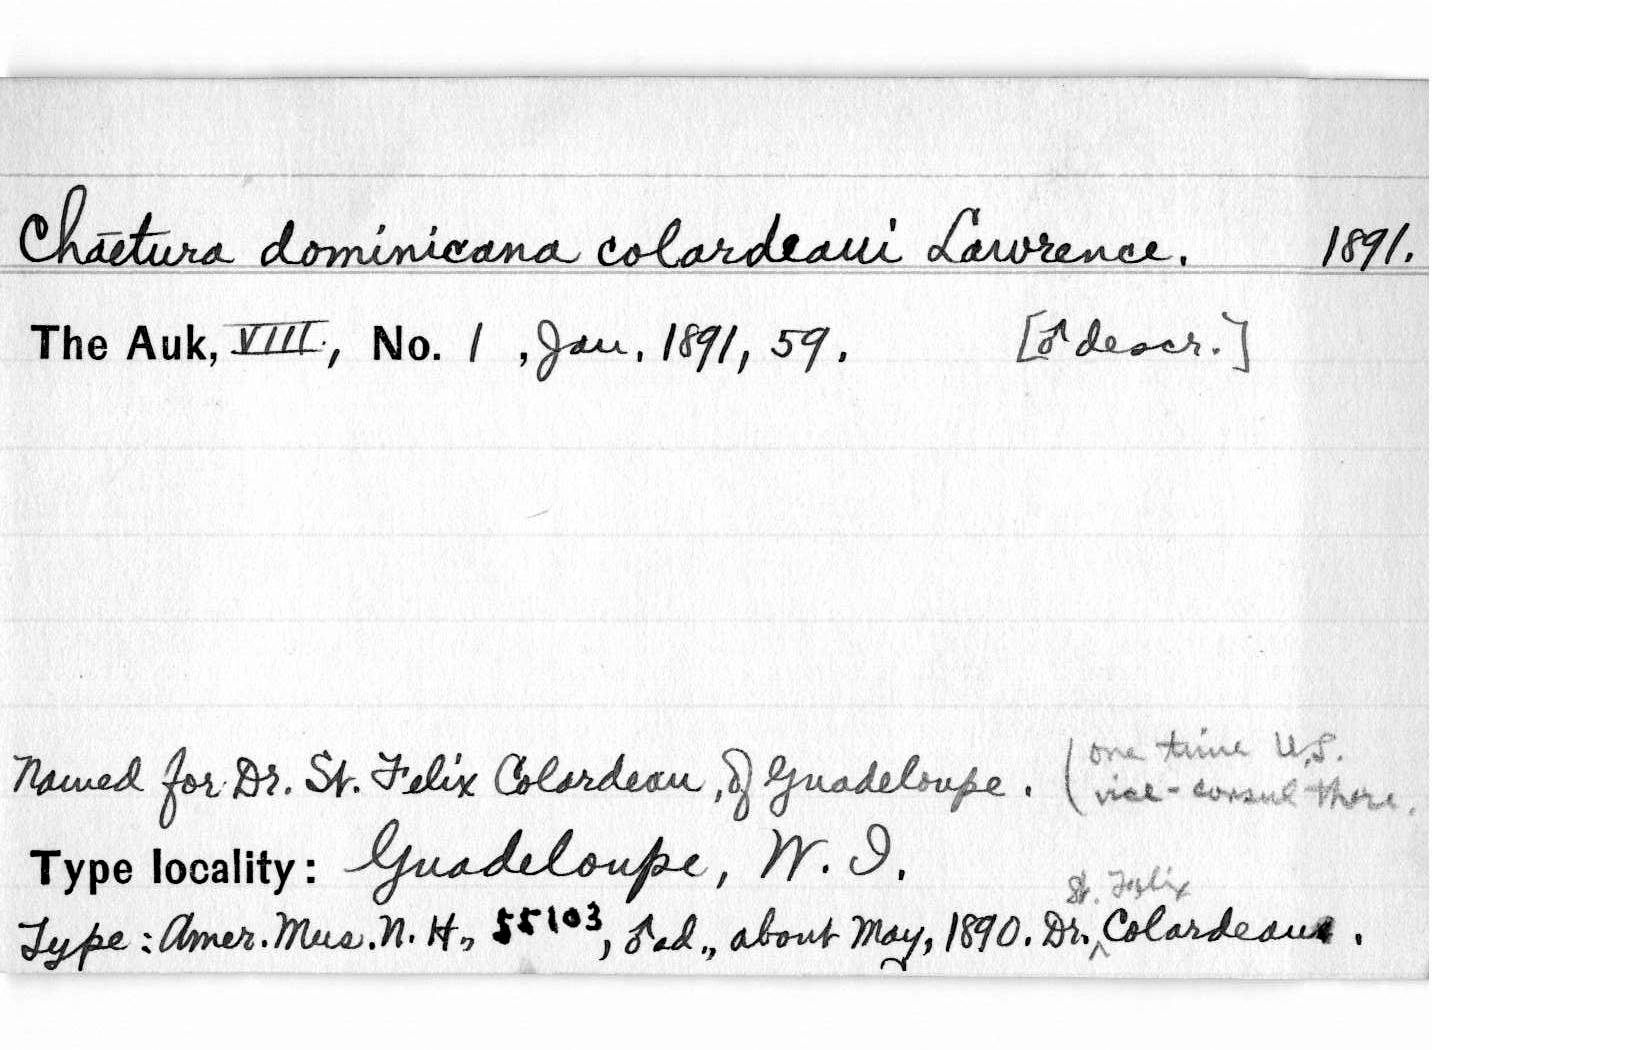 Chaetura dominicana colardeaui Lawrence. 1891.
The Auk, VIII, No. 1, Jan. 1891, 59. [♂ descr.]
Named for Dr. St. Felix Colardeau, of Guadeloupe. (one time U.S.
vice-consul there.
Type locality: Guadeloupe, W. I.
St. Felix
Type: Amer. Mus. N. H., 55103, ♂ ad., about May, 1890. Dr. ^ Colardeau.